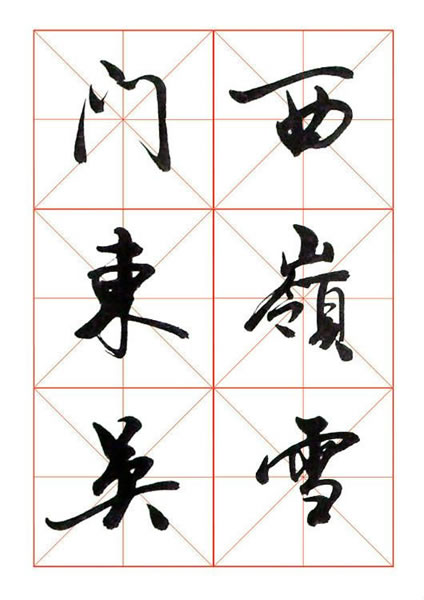 西嶺雪
门東吴